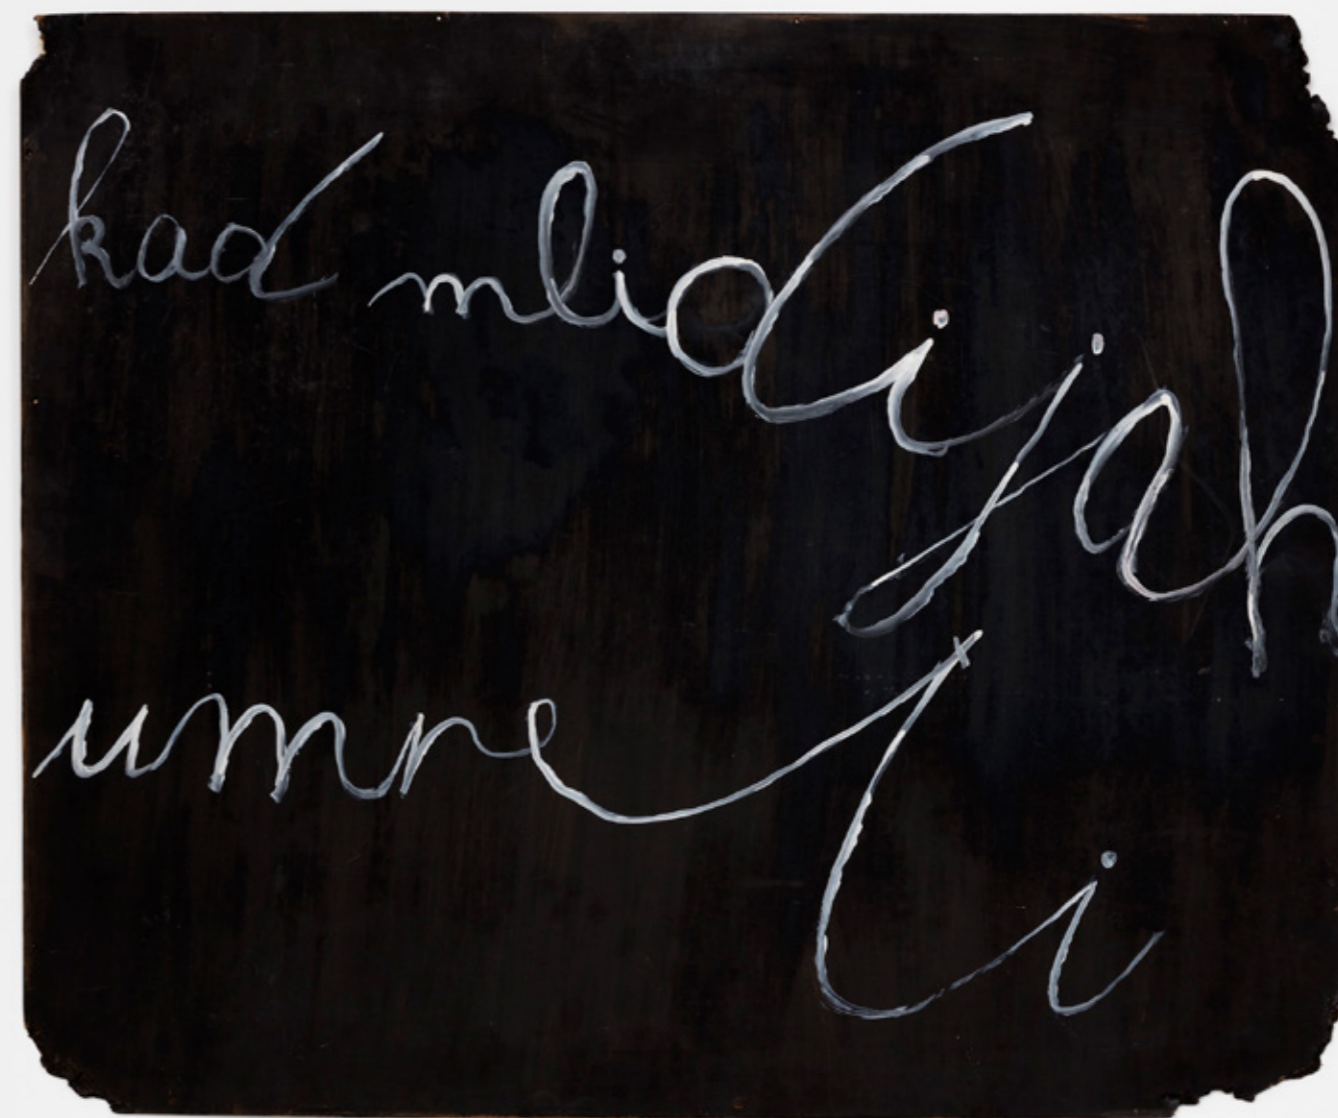 kad mlidijah
umreti